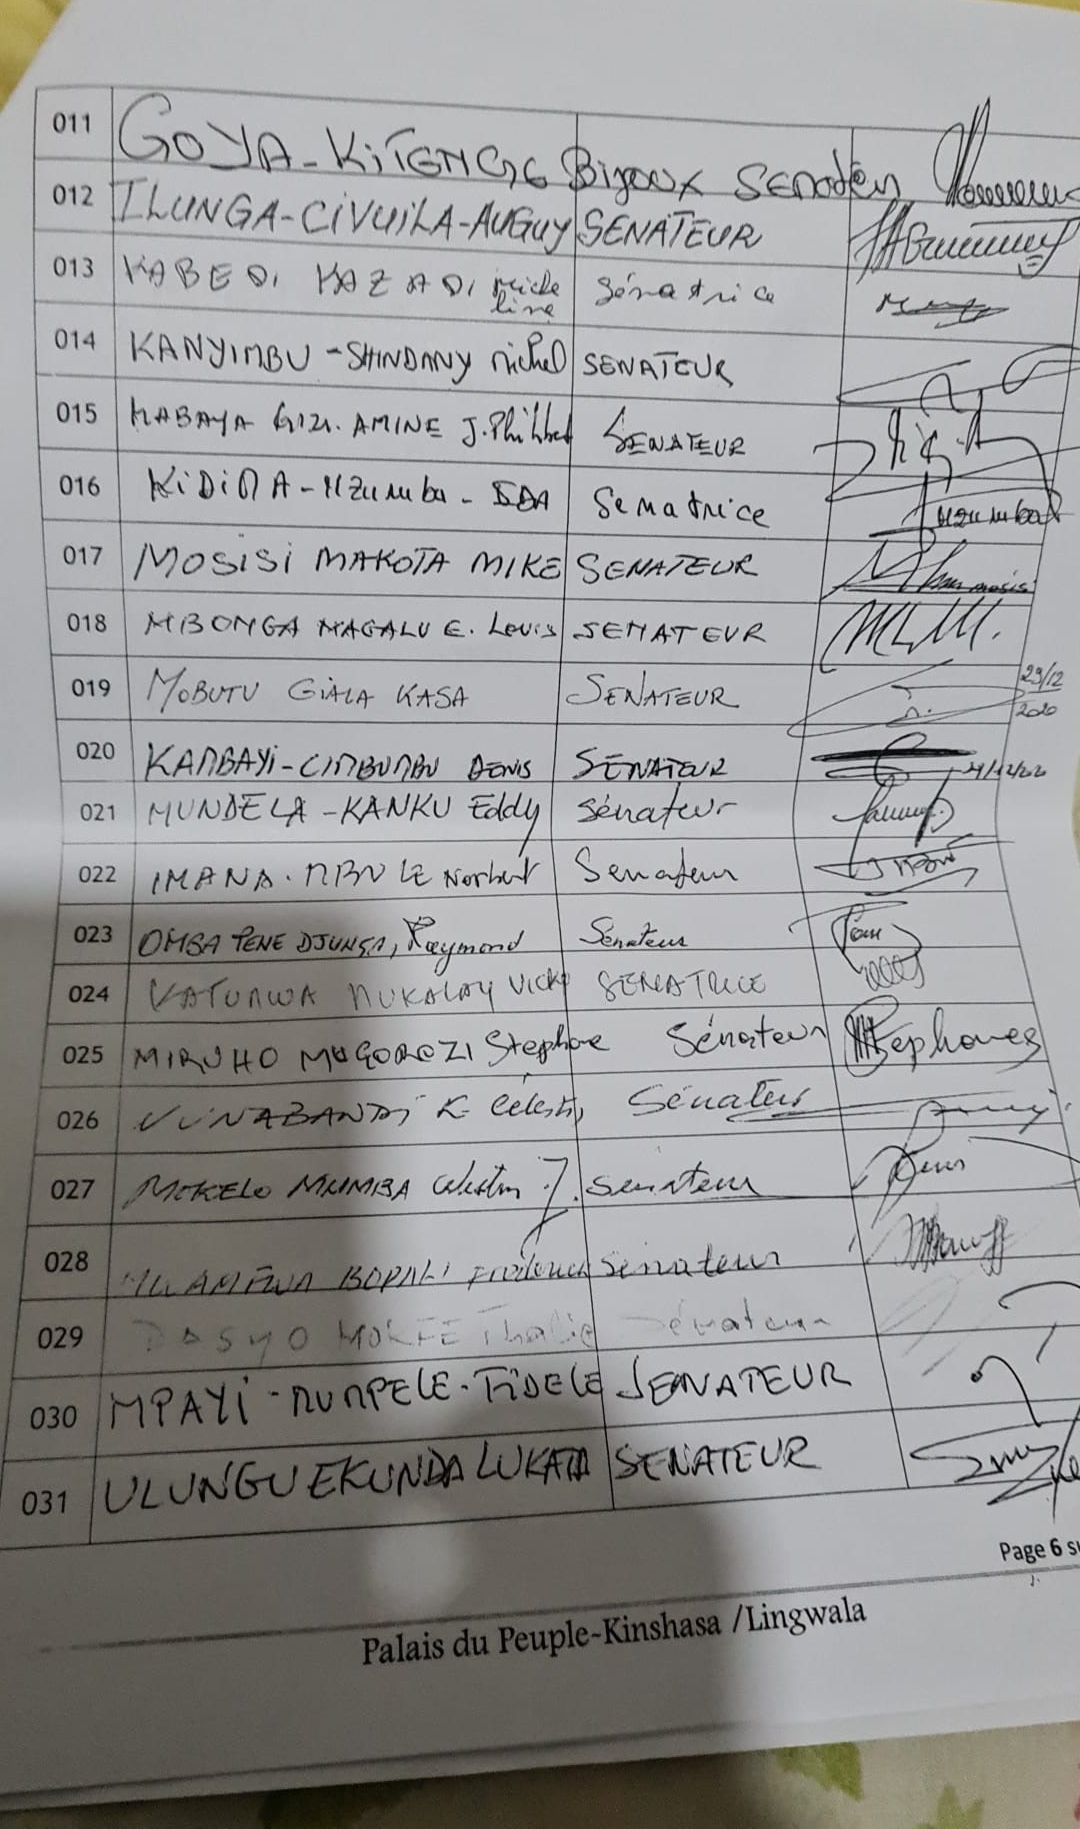 011 GOYA-KITENGE Bijoux Senateur
012 ILUNGA-CIVUILA-AUGUY SENATEUR
013 KABEDI KAZADI Miche line Sénatrice
014 KANYIMBU-SHINDANY Michel SENATEUR
015 KABAYA Gizi. AMINE J.Philibert SENATEUR
016 KiDiMA-Nzumba-IDA Senatrice
017 MOSiSi MAKOTA MIKE SENATEUR
018 MBONGA MAGALU E. Louis SENATEUR
019 MOBUTU GIALA KASA SENATEUR 29/12 2020
020 KAMBAYi-CIMBUMBU DENIS SENATEUR
021 MUNDELA-KANKU Eddy Sénateur
022 IMANA. Norbert Senateur
023 OMBA PENE DJUNGA, Raymond Sénateur
024 KATUMWA MUKALAY VICKY SENATRICE
025 MIRUHO MUGOROZI Stephane Sénateur
026 VUNABANDI K. Célestin Sénateur
027 MOKELO MUMBA Célestin J. Senateur
028 BOPALI Senateur
029 MOKFE Thalie Sénateur
030 MPAYi-MUMPELE-FiDELE SENATEUR
031 ULUNGU EKUNDA LUKATA SENATEUR
Page 6
Palais du Peuple-Kinshasa /Lingwala